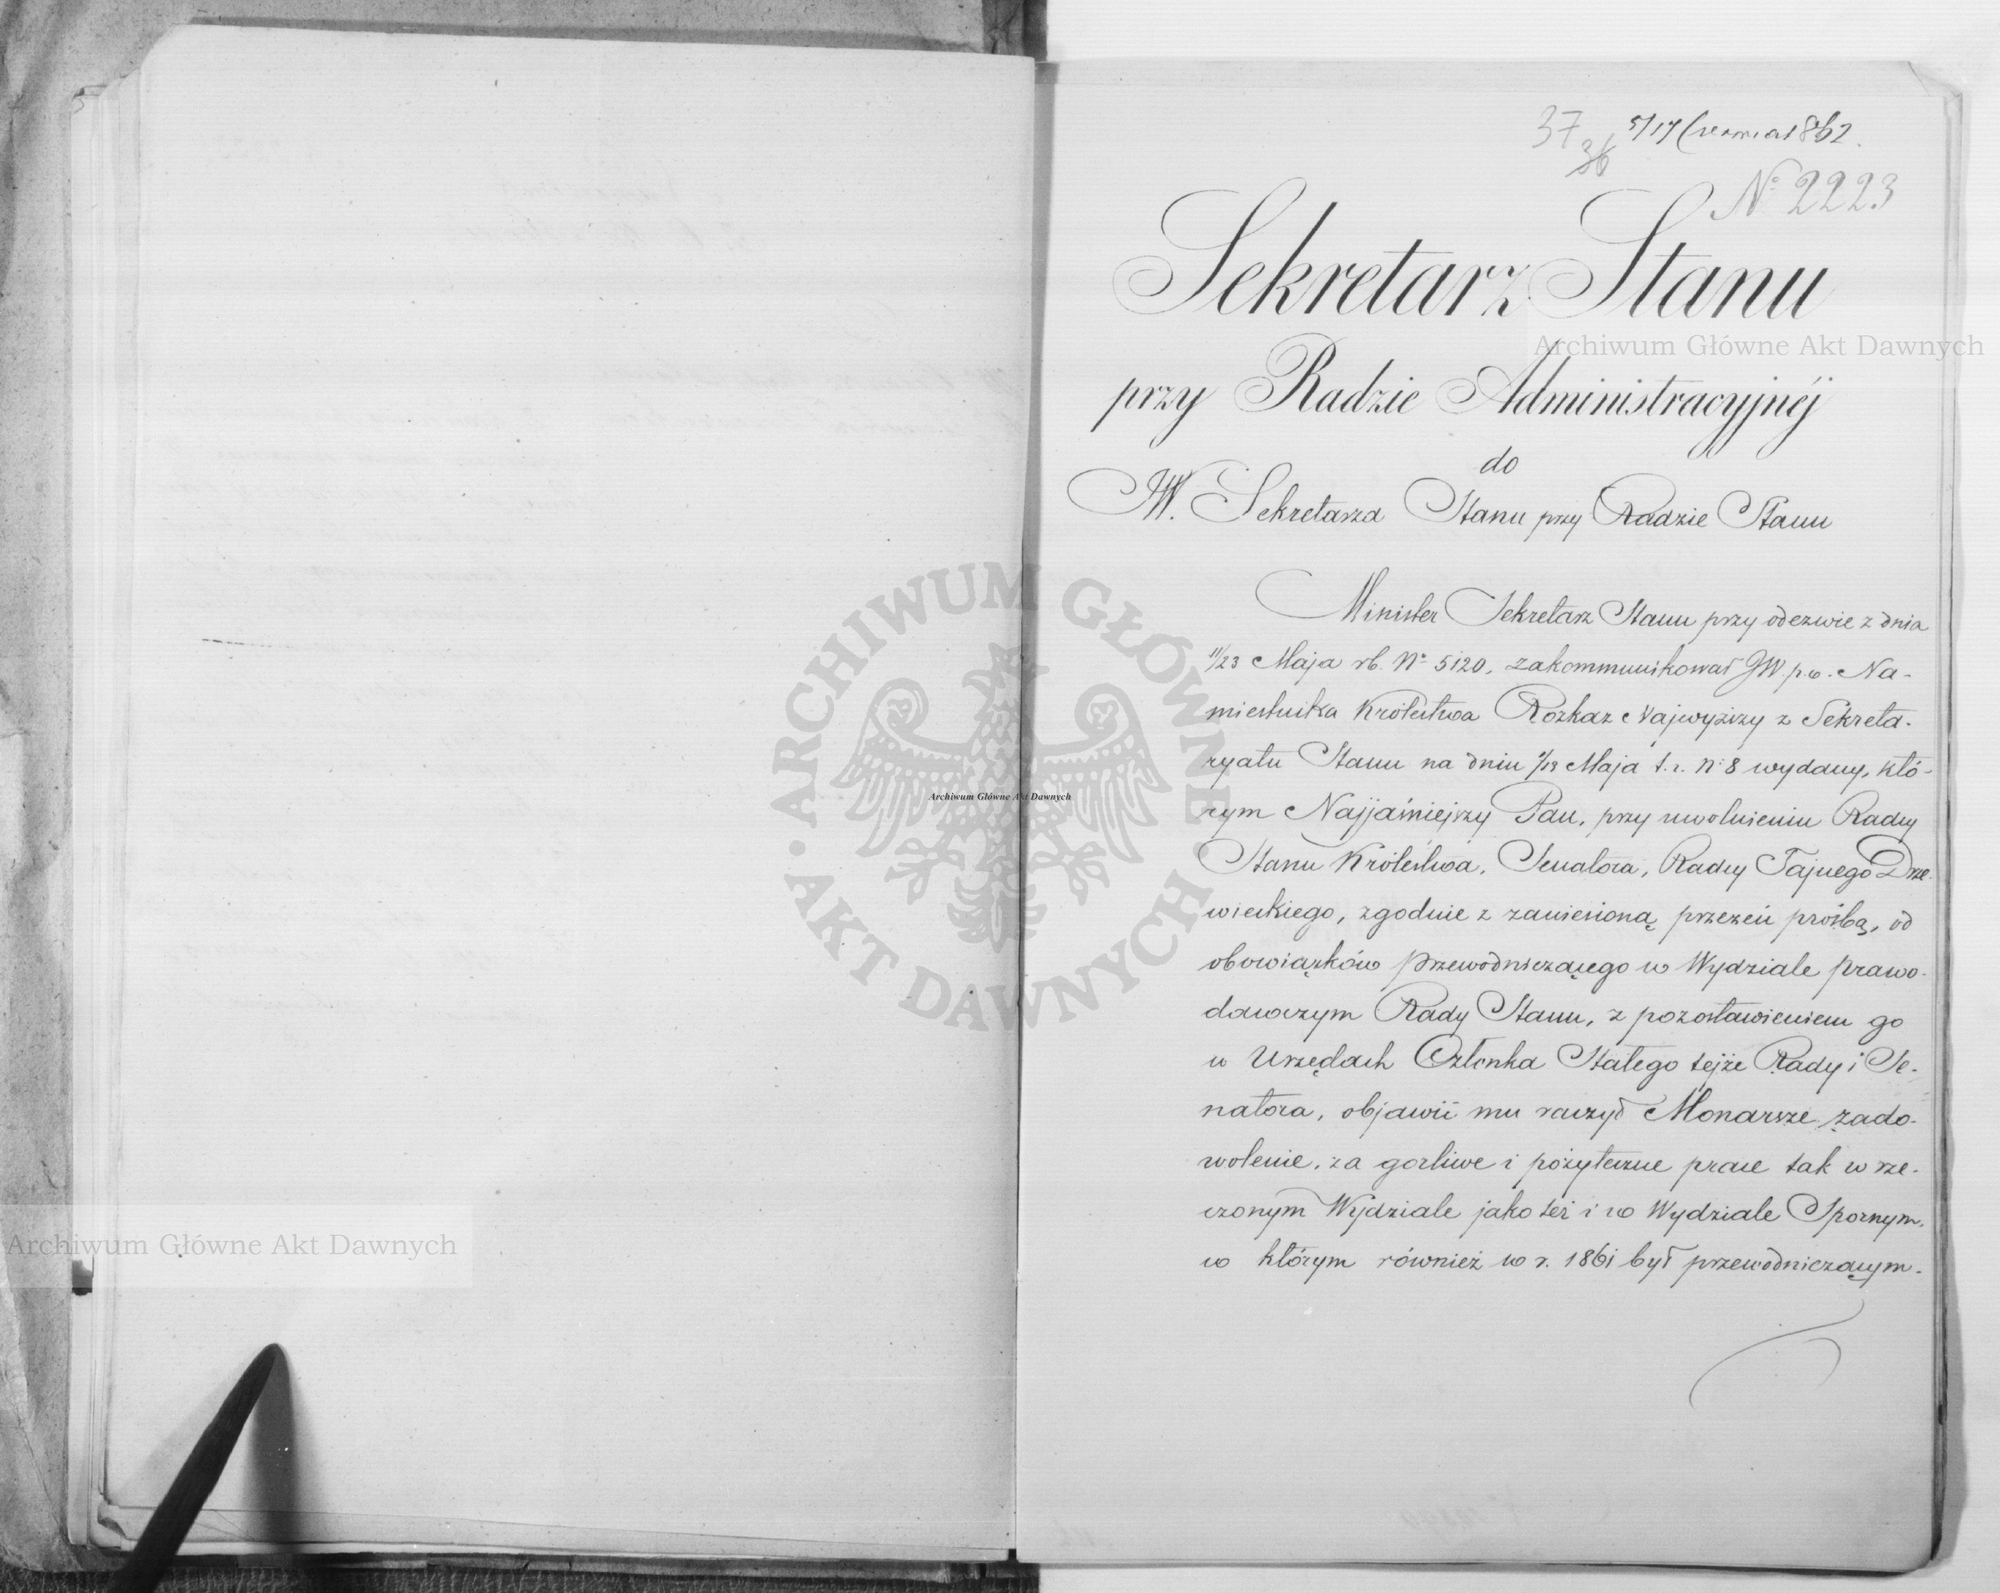 37
36
5/17 Czerwca 1862.
Nº 2223
Sekretarz Stanu
przy Radzie Administracyjnéj
do
JW. Sekretarza Stanu przy Radzie Stanu
Minister Sekretarz Stanu przy odezwie z dnia
11/23 Maja rb. Nº 5120, zakommunikował JW. p.o. Na-
miestnika Królestwa Rozkaz Najwyższy z Sekreta-
ryatu Stanu na dniu 1/13 Maja t.r. Nº 8 wydany, któ-
rym Najjaśniejszy Pan, przy uwolnieniu Radcy
Stanu Królestwa, Senatora, Radcy Tajnego Drze-
wieckiego, zgodnie z zaniesioną przezeń prośbą, od
obowiązków Przewodniczącego w Wydziale prawo-
dawczym Rady Stanu, z pozostawieniem go
w Urzędach Członka Stałego tejże Rady i Se-
natora, objawić mu raczył Monarsze zado-
wolenie, za gorliwe i pożyteczne prace tak w rze-
czonym Wydziale jako też i w Wydziale Spornym,
w którym również w r. 1861 był przewodniczącym.
Archiwum Główne Akt Dawnych
Archiwum Główne Akt Dawnych
Archiwum Główne Akt Dawnych
ARCHIWUM GŁÓWNE AKT DAWNYCH